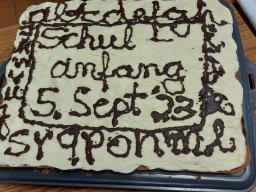 abcdefgh
Schul
anfang
5. Sept. 23
srqponml